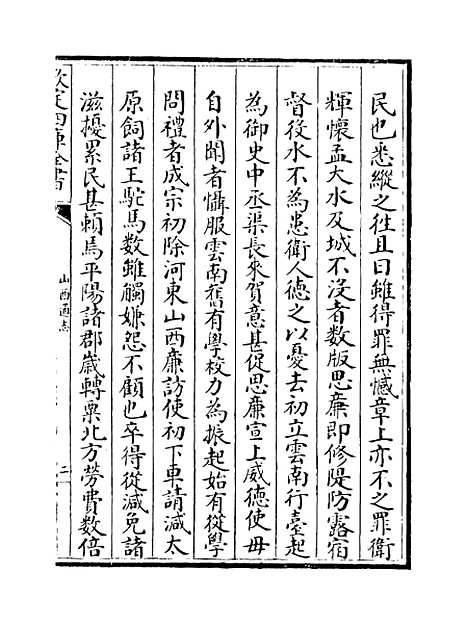 民也悉縱之徃且曰雖得罪無憾章上亦不之罪衛
輝懷孟大水及城不沒者數版思亷即修隄防露宿
督役水不為患衛人德之以憂去初立雲南行臺起
為御史中丞渠長來賀意甚促思亷宣上威德使毋
自外聞者懾服雲南舊有學校力為振起始有從學
問禮者成宗初除河東山西亷訪使初下車請減太
原飼諸王駝馬数雖觸嫌怨不顧也卒得從減免諸
滋擾累民甚賴焉平陽諸郡嵗轉粟北方勞費数倍
欽定四庫全書
山西通志
二